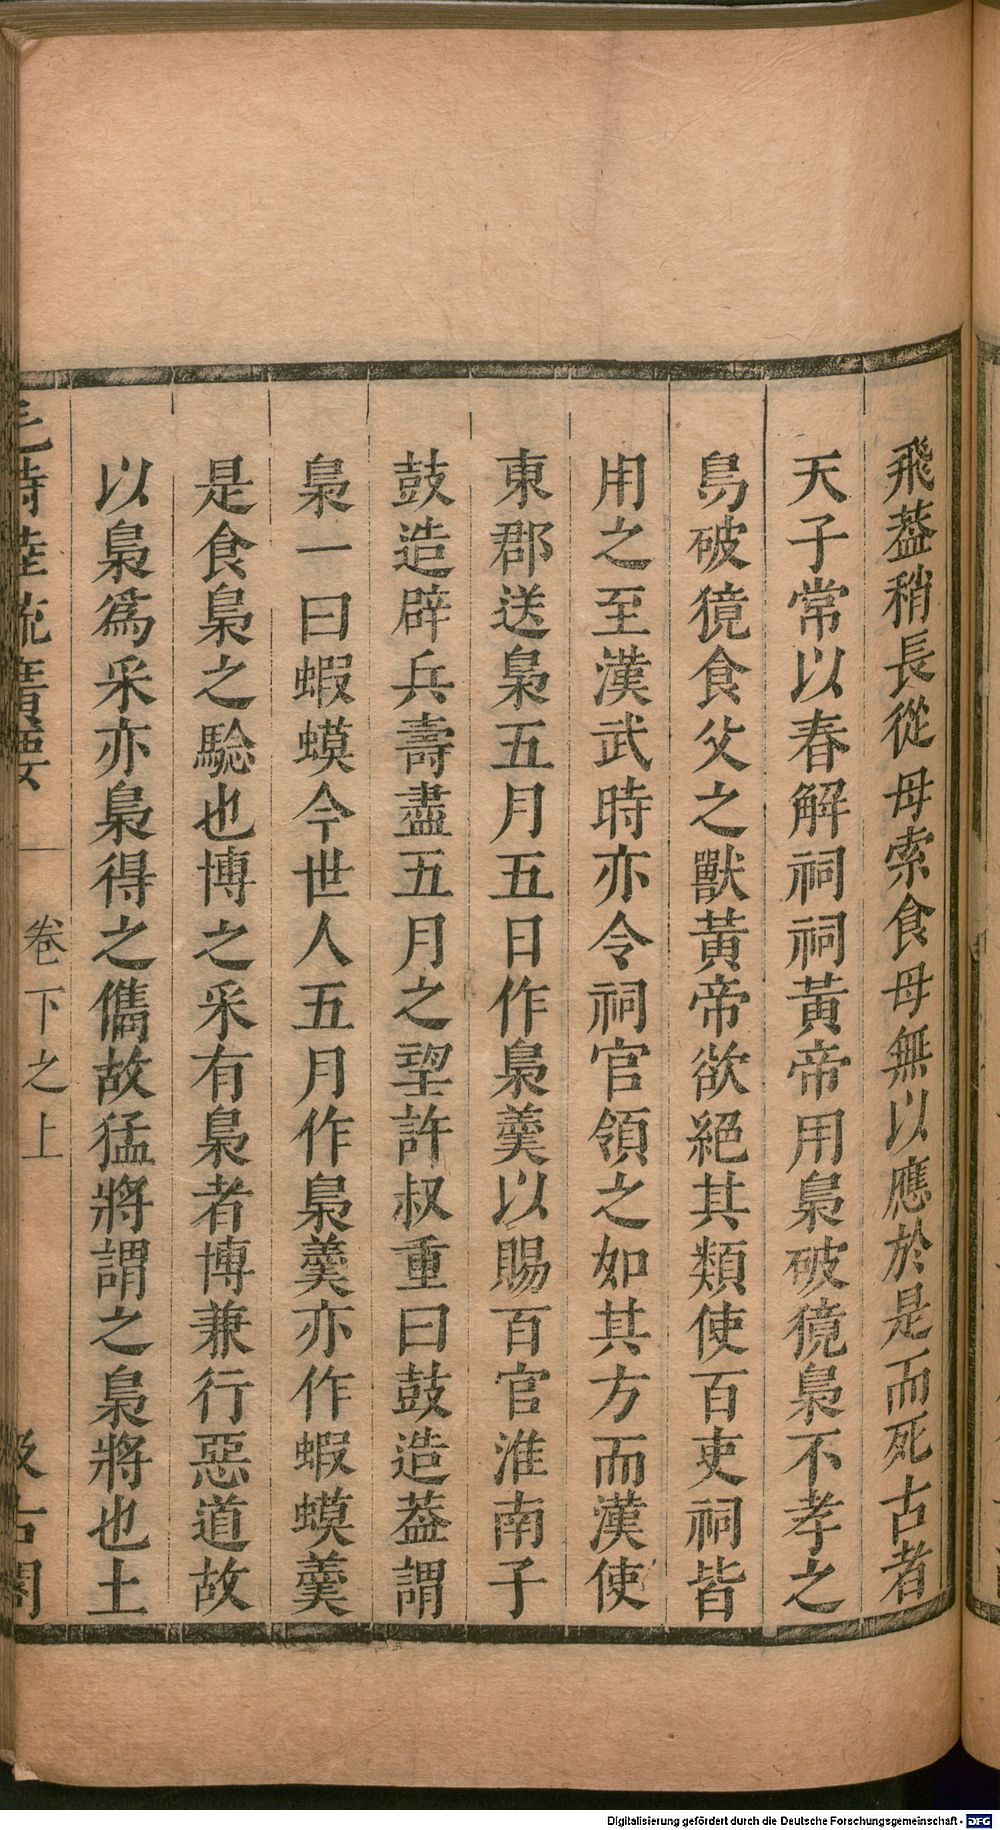 飛葢稍長從母索食母無以應於是而死古者
天子常以春解祠祠黃帝用梟破獍梟不孝之
鳥破獍食父之獸黃帝欲絕其類使百吏祠皆
用之至漢武時亦令祠官領之如其方而漢使
東郡送梟五月五日作梟羹以賜百官淮南子
鼓造辟兵壽盡五月之望許叔重曰鼓造葢謂
梟一曰蝦蟆今世人五月作梟羹亦作蝦蟆羹
是食梟之驗也博之采有梟者博兼行惡道故
以梟爲采亦梟得之儁故猛將謂之梟將也土
毛詩陸疏廣要 卷下之上 汲古閣
Digitalisierung gefördert durch die Deutsche Forschungsgemeinschaft - DFG